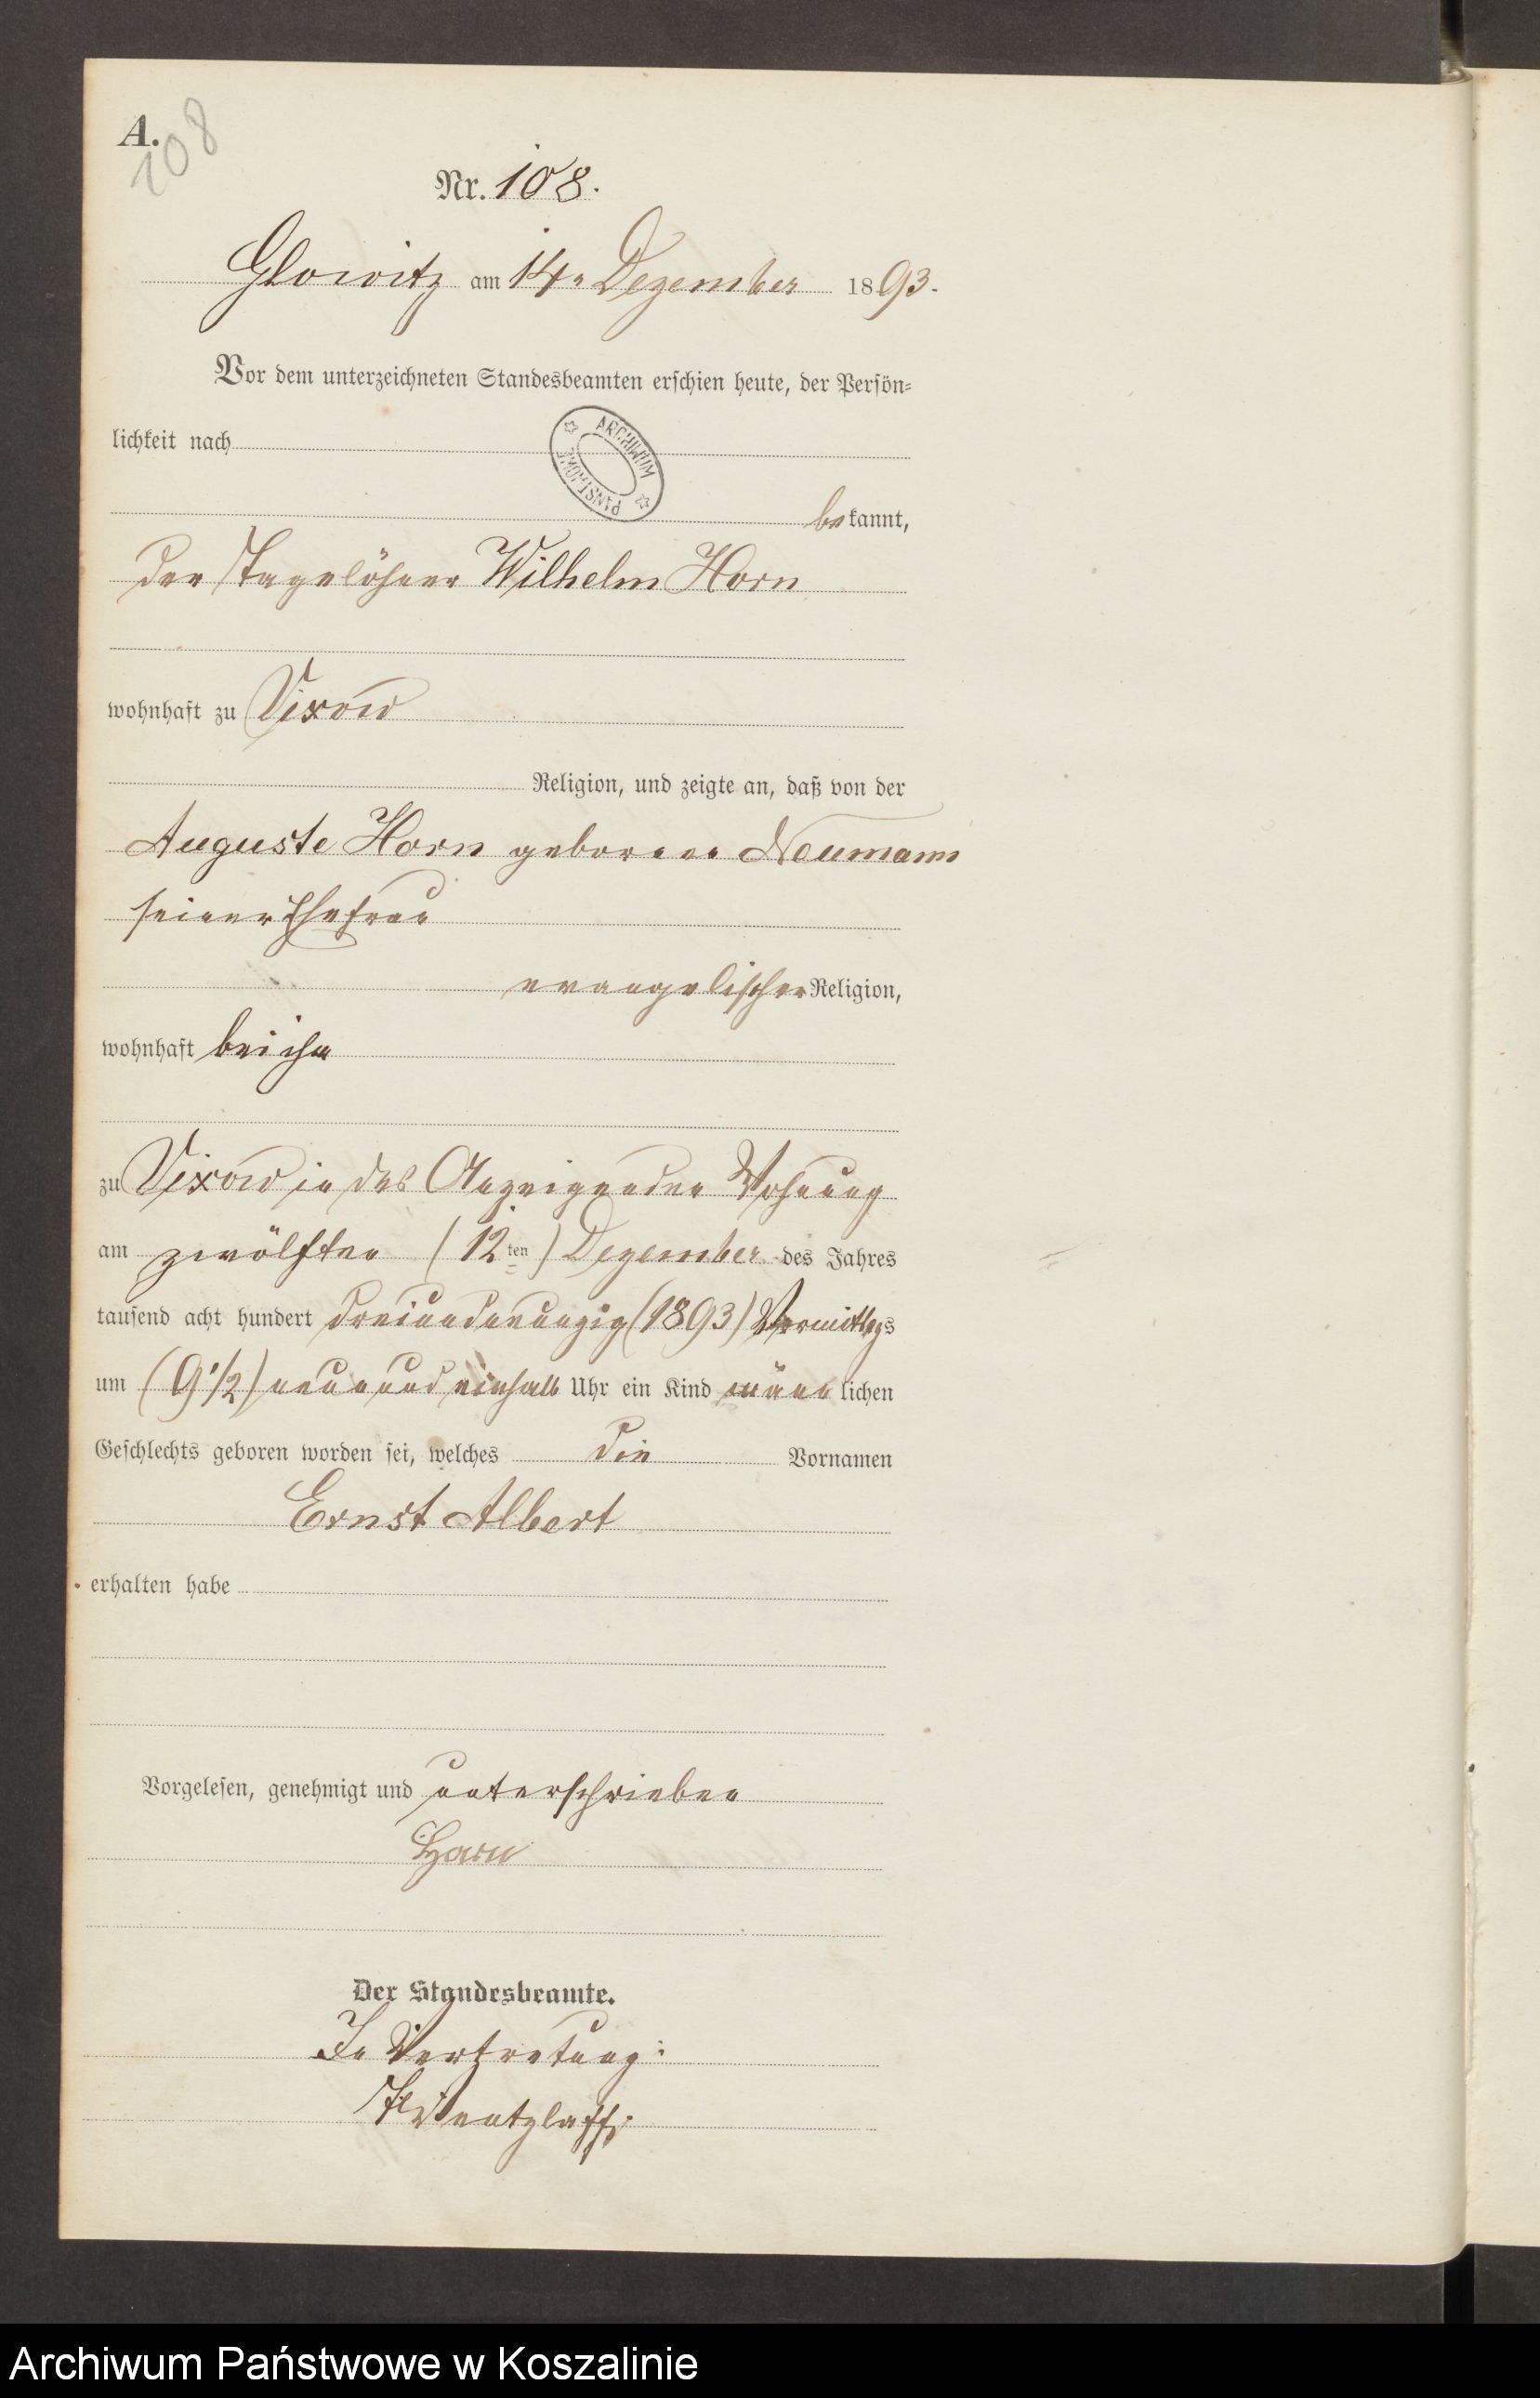 A.
108
Nr. 108.
Glowitz am 14. Dezember 1893.
Vor dem unterzeichneten Standesbeamten erschien heute, der Persön-
lichkeit nach
ARCHIWUM
PAŃSTWOWE
bekannt,
der Tagelöhner Wilhelm Horn
wohnhaft zu Vixow
Religion, und zeigte an, daß von der
Auguste Horn geborene Neumann
seiner Ehefrau
evangelischer Religion,
wohnhaft bei ihm
zu Vixow in des Anzeigenden Wohnung
am zwölften (12ten) Dezember des Jahres
tausend acht hundert dreiundneunzig (1893) Vormittags
um (9 1/2) neun und einhalb Uhr ein Kind männlichen
Geschlechts geboren worden sei, welches die Vornamen
Ernst Albert
erhalten habe
Vorgelesen, genehmigt und unterschrieben
Horn
Der Standesbeamte.
In Vertretung:
Wentzlaff.
Archiwum Państwowe w Koszalinie